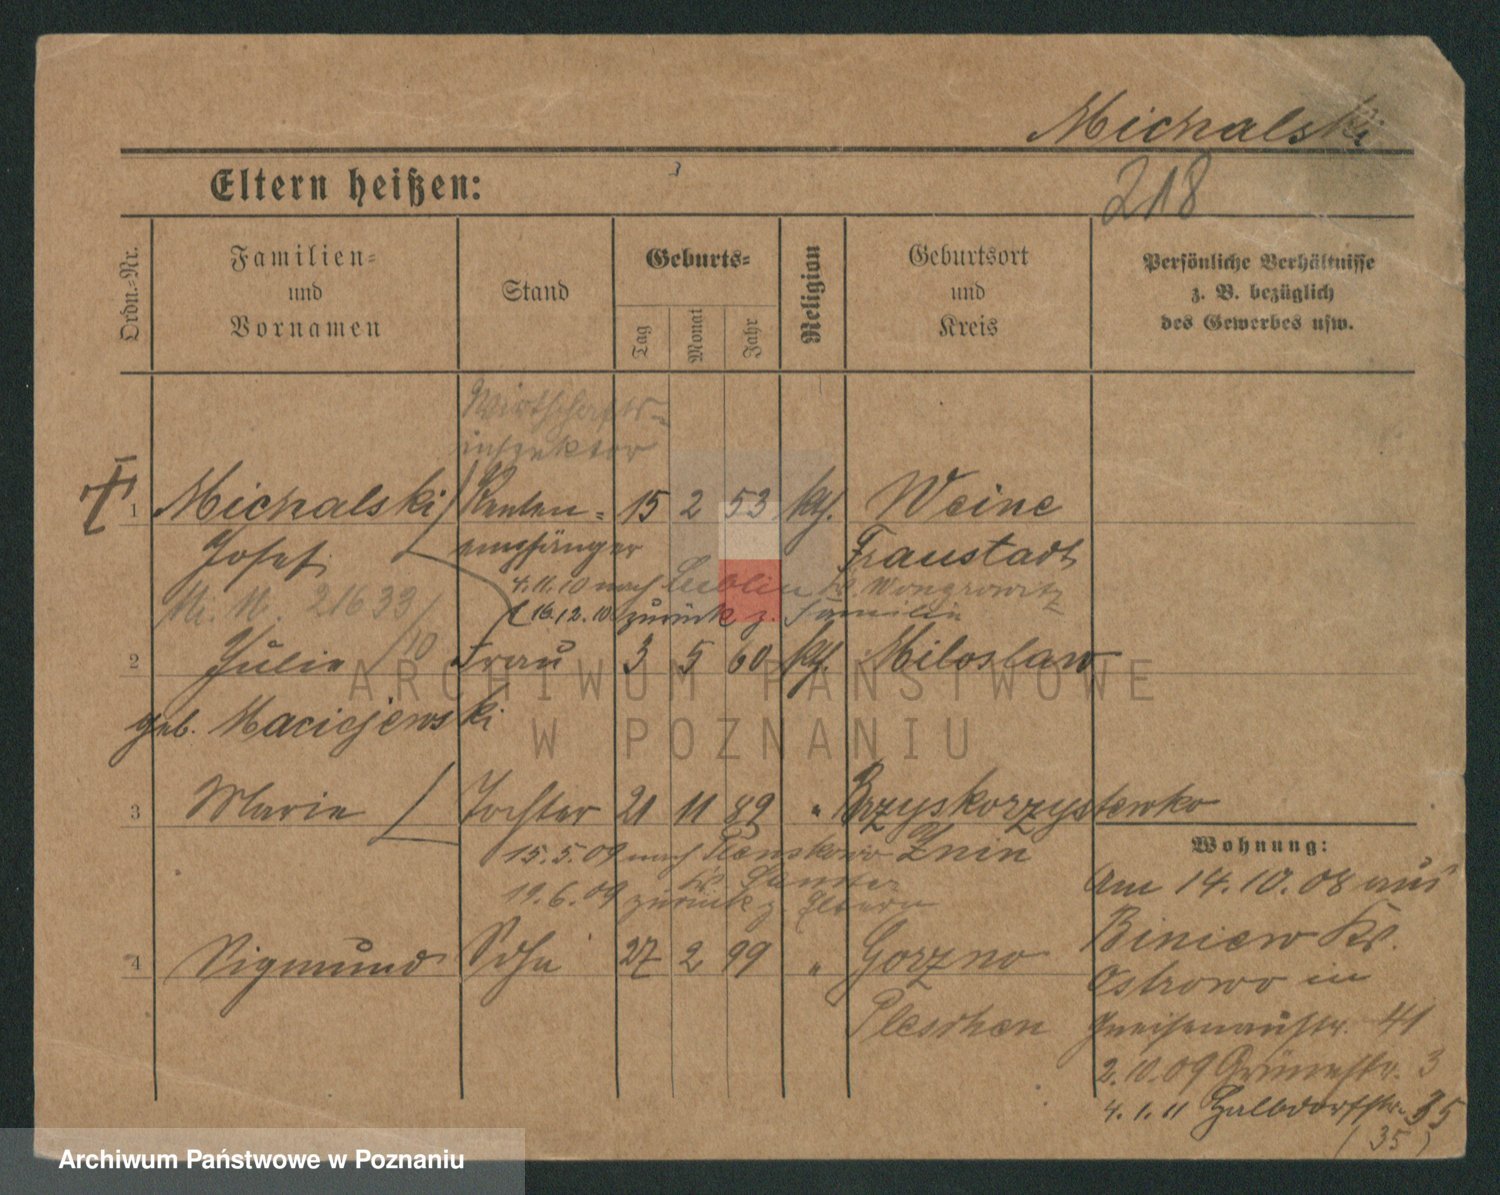 Michalski
218
Eltern heißen:
Ordn.-Nr.
Familien-
und
Vornamen
Stand
Geburts-
Tag
Monat
Jahr
Religion
Geburtsort
und
Kreis
Persönliche Verhältnisse
z. B. bezüglich
des Gewerbes usw.
Wirtschafts-
inspektor
1 Michalski Renten- 15 2 53 kth. Weine
Josef empfänger Fraustadt
4.11.10 nach Lublin Kr. Wongrowitz
21633/10 16.12.10 zurück z. Familie
2 Julie Frau 3 5 60 kth. Miloslaw
geb. Macicjewski
3 Marie Tochter 21 11 89 " Brzyskorzystewko
15.5.09 nach Znin
19.6.09 zurück z. Eltern
4 Sigmund Sohn 27 2 99 " Gorzno
Pleschen
Wohnung:
Am 14.10.08 aus
Biniew Kr.
Ostrowo in
Gneisenaustr. 41
2.10.09 Grünestr. 3
4.1.11 Halbdorfstr. 35
(35)
ARCHIWUM PAŃSTWOWE
W POZNANIU
Archiwum Państwowe w Poznaniu